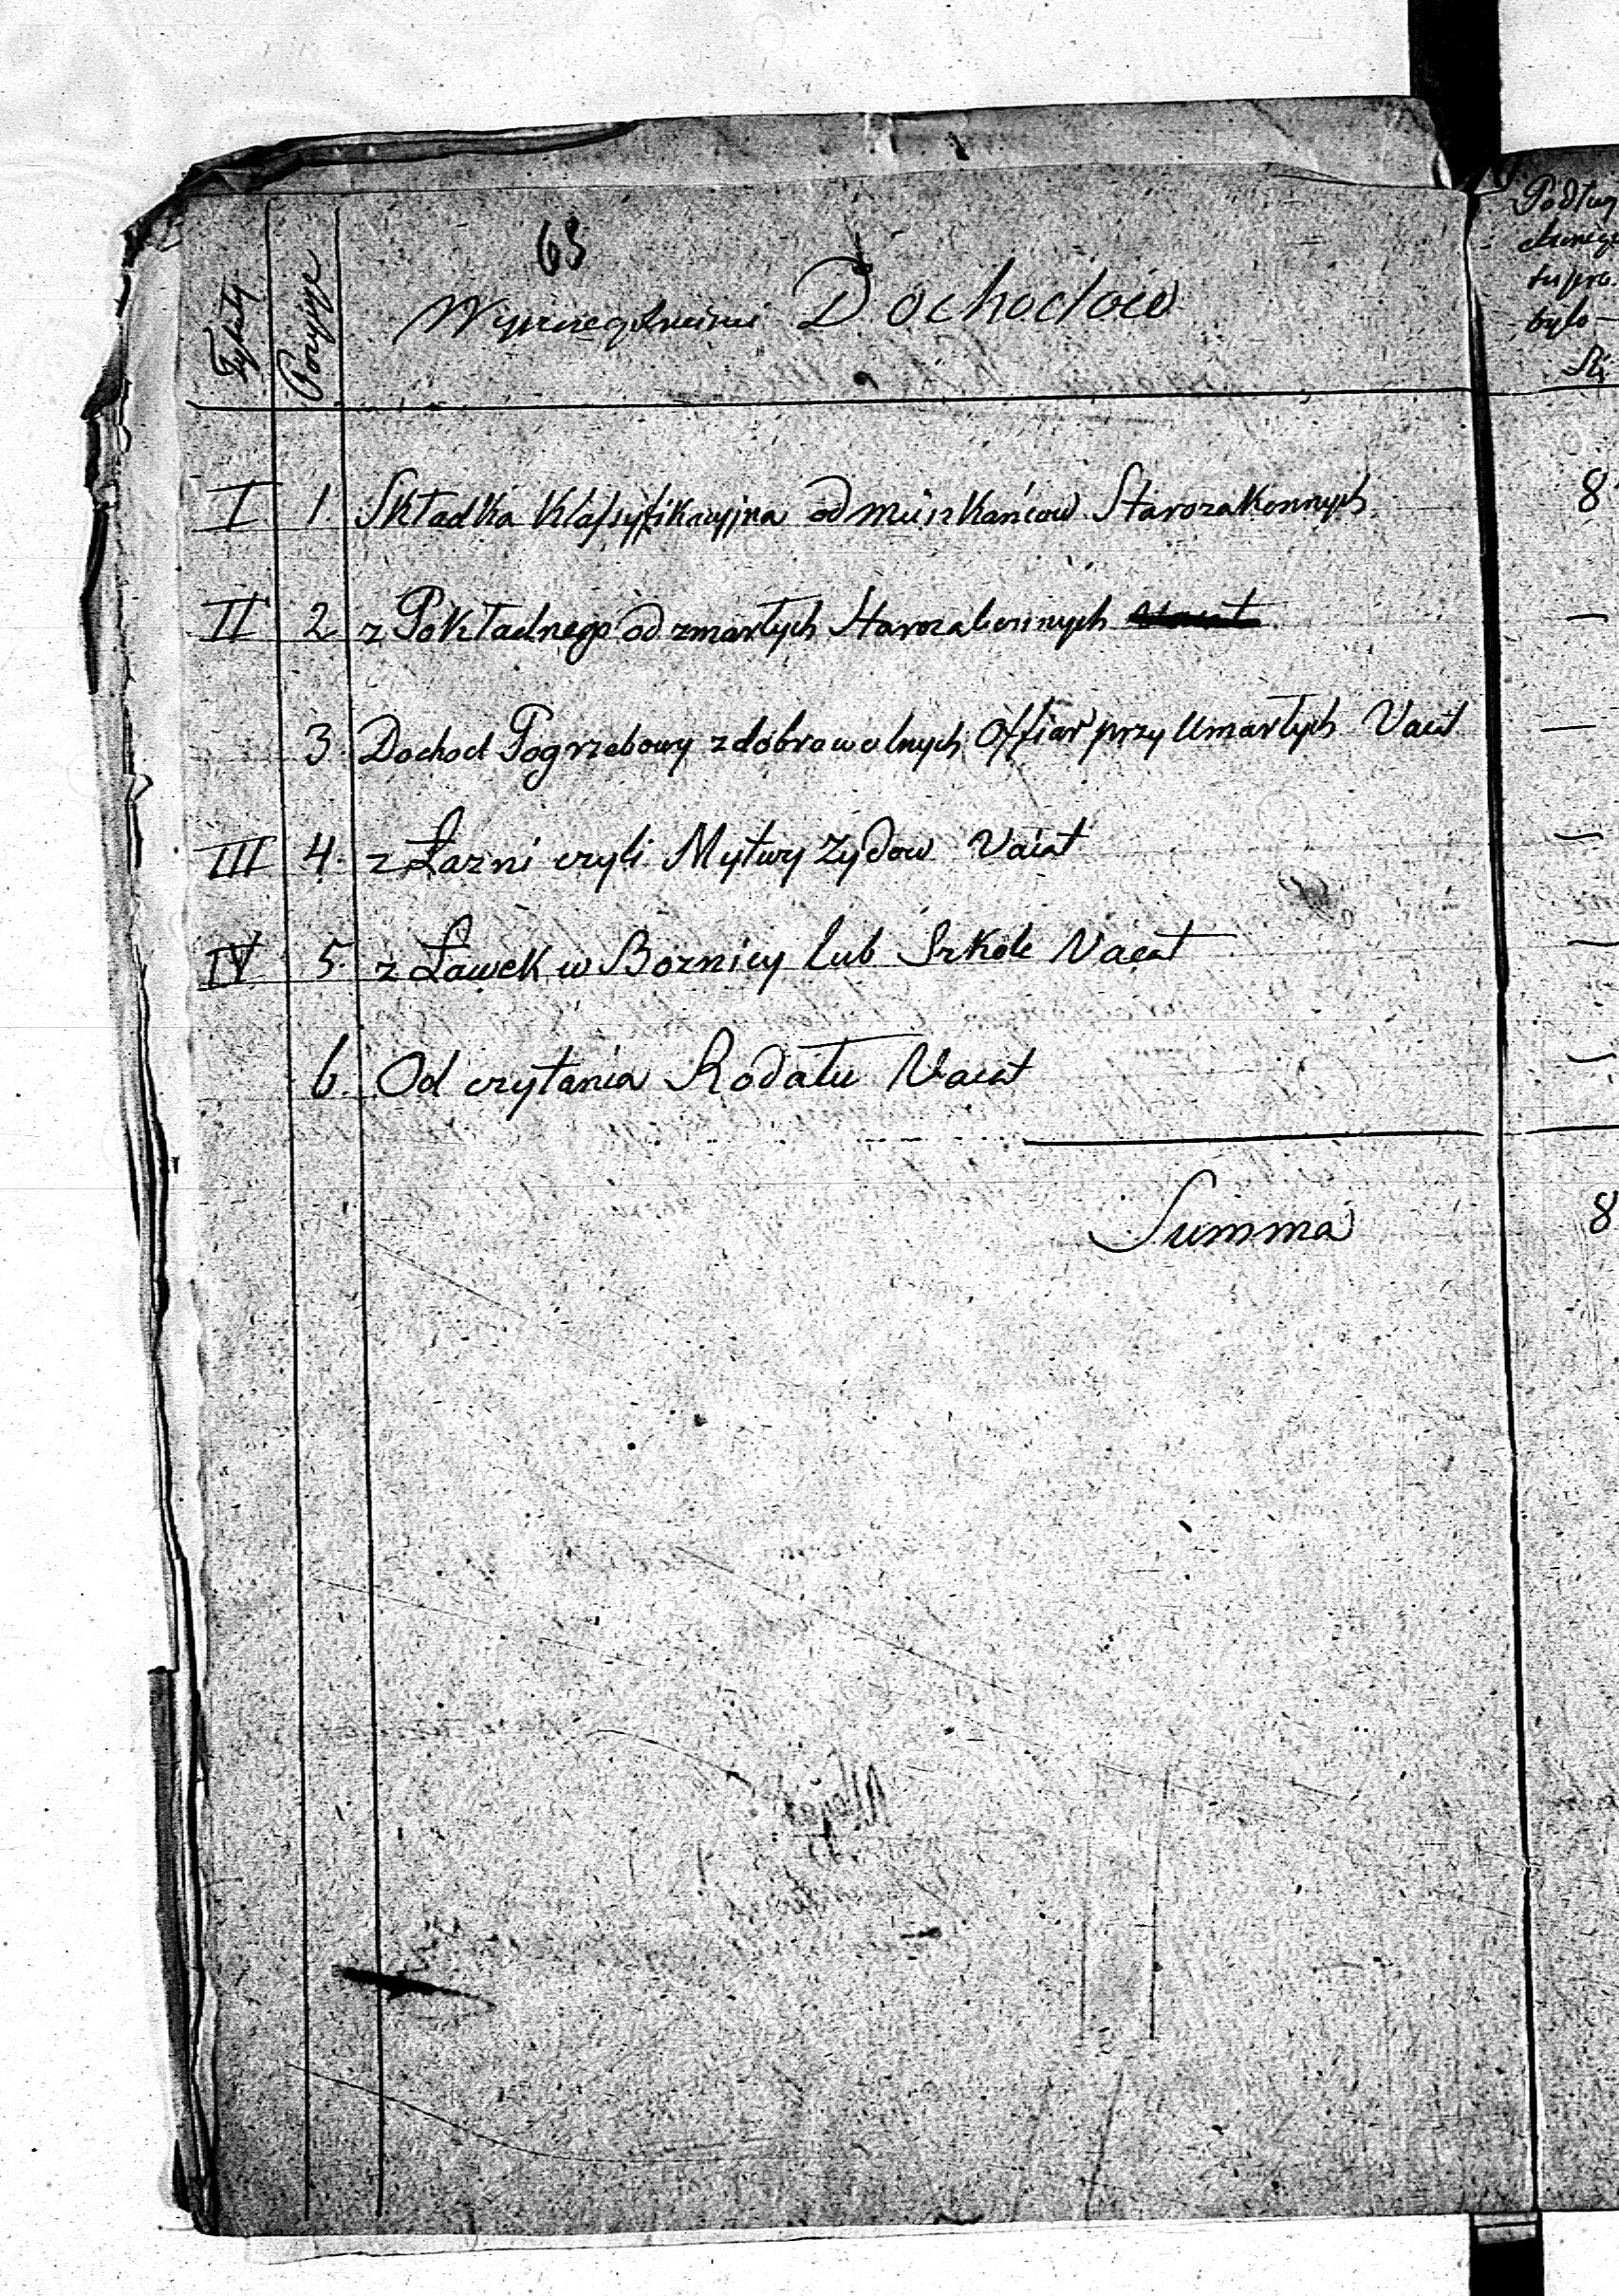 63
Tytuły Pozycye Wyszczegulnienie Dochodow
I 1. Składka Klassyfikacyjna od mieszkańcow Starozakonnych 8
II 2 z Pokładnego od zmarłych Starozakonnych
3. Dochod Pogrzebowy z dobrowolnych offiar przy Umarłych Vacat —
III 4. z Łazni czyli Mytwy Zydow Vacat —
IV 5. z Ławek w Boznicy lub Szkole Vacat —
6. Od czytania Rodału Vacat —
Summa 8